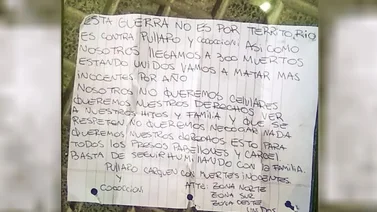 ESTA GUERRA NO ES POR TERRITORIO
ES CONTRA PULLARO Y COCOCCIONI. ASI COMO
NOSOTROS LLEGAMOS A 300 MUERTOS
ESTANDO UNIDOS VAMOS A MATAR MAS
INOCENTES POR AÑO
NOSOTROS NO QUEREMOS CELULARES
QUEREMOS NUESTROS DERECHOS VER
A NUESTROS HIJOS Y FAMILIA Y QUE SE
RESPETEN NO QUEREMOS NEGOCIAR NADA
QUEREMOS NUESTROS DERECHOS ESTO PARA
TODOS LOS PRESOS PAPELLONES Y CARCEL
BASTA DE SEGUIR HUMILLANDO CON LA FAMILIA.
PULLARO CARGUEN CON MUERTES INOCENTES
Y
COCOCCIONI
ATTE: ZONA NORTE
ZONA SUR
ZONA OESTE
UNIDOS